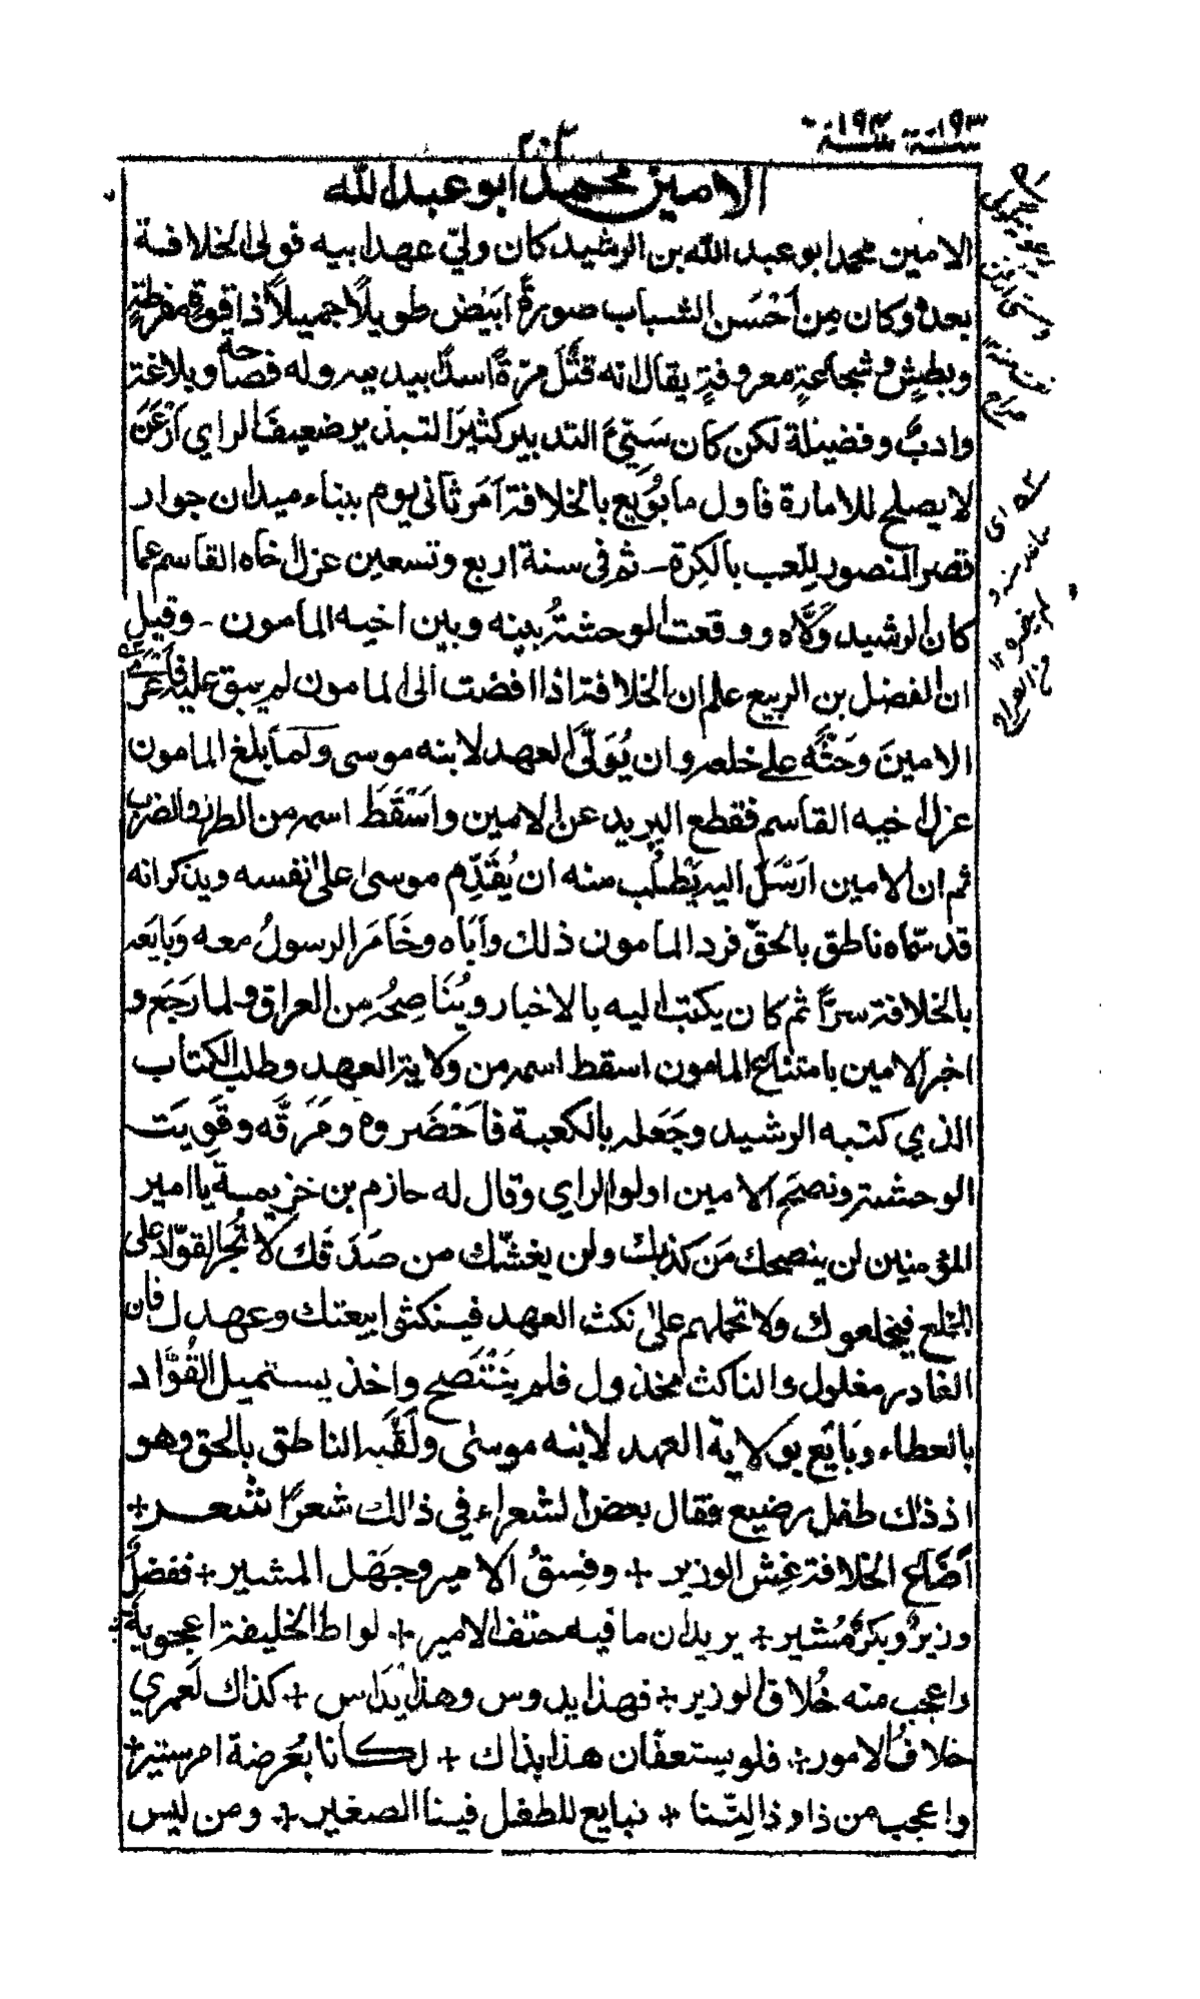 سنة ١٩٣ سنة ١٩٤
٢٠٣
الامين محمد ابو عبد الله
الامين محمد ابو عبد الله بن الرشيد كان وليّ عهد ابيه فولي الخلافة
بعده وكان مِن اَحْسَن الشباب صورةً ابَيْض طويلًا جميلًا ذا قوةٍ مفرطةٍ
وبطشٍ وشجاعةٍ معروفةٍ يقال انه قتَل مرّةً اسدًا بيديه وله فصاحة وبلاغة
وادبٌ وفضيلة لكن كان سَيِّئَ التدبير كثيرَ التبذير ضعيفَ الراي اَرْعَنَ
لا يصلح للامارة فاول ما بُويع بالخلافة اَمَر ثاني يوم ببناء ميدان جوار
قصر المنصور للعب بالكرة ـ ثم في سنة اربع وتسعين عزل اخاه القاسم عما
كان الرشيد وَلّاه ووقعت الوحشةُ بينه وبين اخيه المامون ـ وقيل
ان الفضل بن الربيع علم ان الخلافة اذا افضت الى المامون لم يبق عليه فاَغْرىٰ
الامينَ وَحَثَّه على خلعه وان يُوَلَّىَ العهد لابنه موسى ولما بلغ المامون
عزل اخيه القاسم فقطع البريد عن الامين واَسْقَطَ اسمه من الطراز والضرب
ثم ان الامين ارْسَلَ اليه يَطْلُب منه ان يُقَدِّم موسى على نفسه ويذكر انه
قد سمّاه ناطق بالحقّ فرد المامون ذلك واَبَاه وخَامَرَ الرسولُ معه وَبَايَعَه
بالخلافة سرًّا ثم كان يكتب اليه بالاخبار ويُنَاصِحُه مِن العراق ولما رَجَع و
اخبر الامين بامتناع المامون اسقط اسمه من ولاية العهد وطلب الكتاب
الذي كتبه الرشيد وجَعَله بالكعبة فاَحْضَروه ومَزَّقَه وقَوِيَت
الوحشة ونصَح الامين اولوا الراي وقال له حازم بن خزيمة يا امير
المؤمنين لن ينصحك مَن كذبك ولن يغشّك من صَدَقَك لا تُجرِ القوّاد على
الخلع فيخلعوك ولا تحملهم على نكث العهد فينكثوا بيعتك وعهدك فان
الغادر مغلول والناكث مخذول فلم يَنْتَصِح واخذ يستميل القُوَّاد
بالعطاء وبَايَع بولاية العهد لابنه موسى ولَقَّبَه الناطق بالحق وهو
اذ ذاك طفل رضيع فقال بعض الشعراء في ذالك شعرًا شعــر+
اَضَاعَ الخلافة غِش الوزير + وفِسقُ الامير وجَهْل المشير + ففضلٌ
وزيرٌ وبكرٌ مُشير + يريدان ما فيه حتف الامير + لواط الخليفة اعجوبة
واعجب منه خُلاق الوزير + فهذا يدوس وهذا يُدَاس + كذاك لعمري
خلافُ الامور + فلو يستعفّان هذا بذاك + لكانا بعُرضة امر ستير +
واعجب من ذا وذا انّنا + نبايع للطفل فينا الصغير + ومن ليس